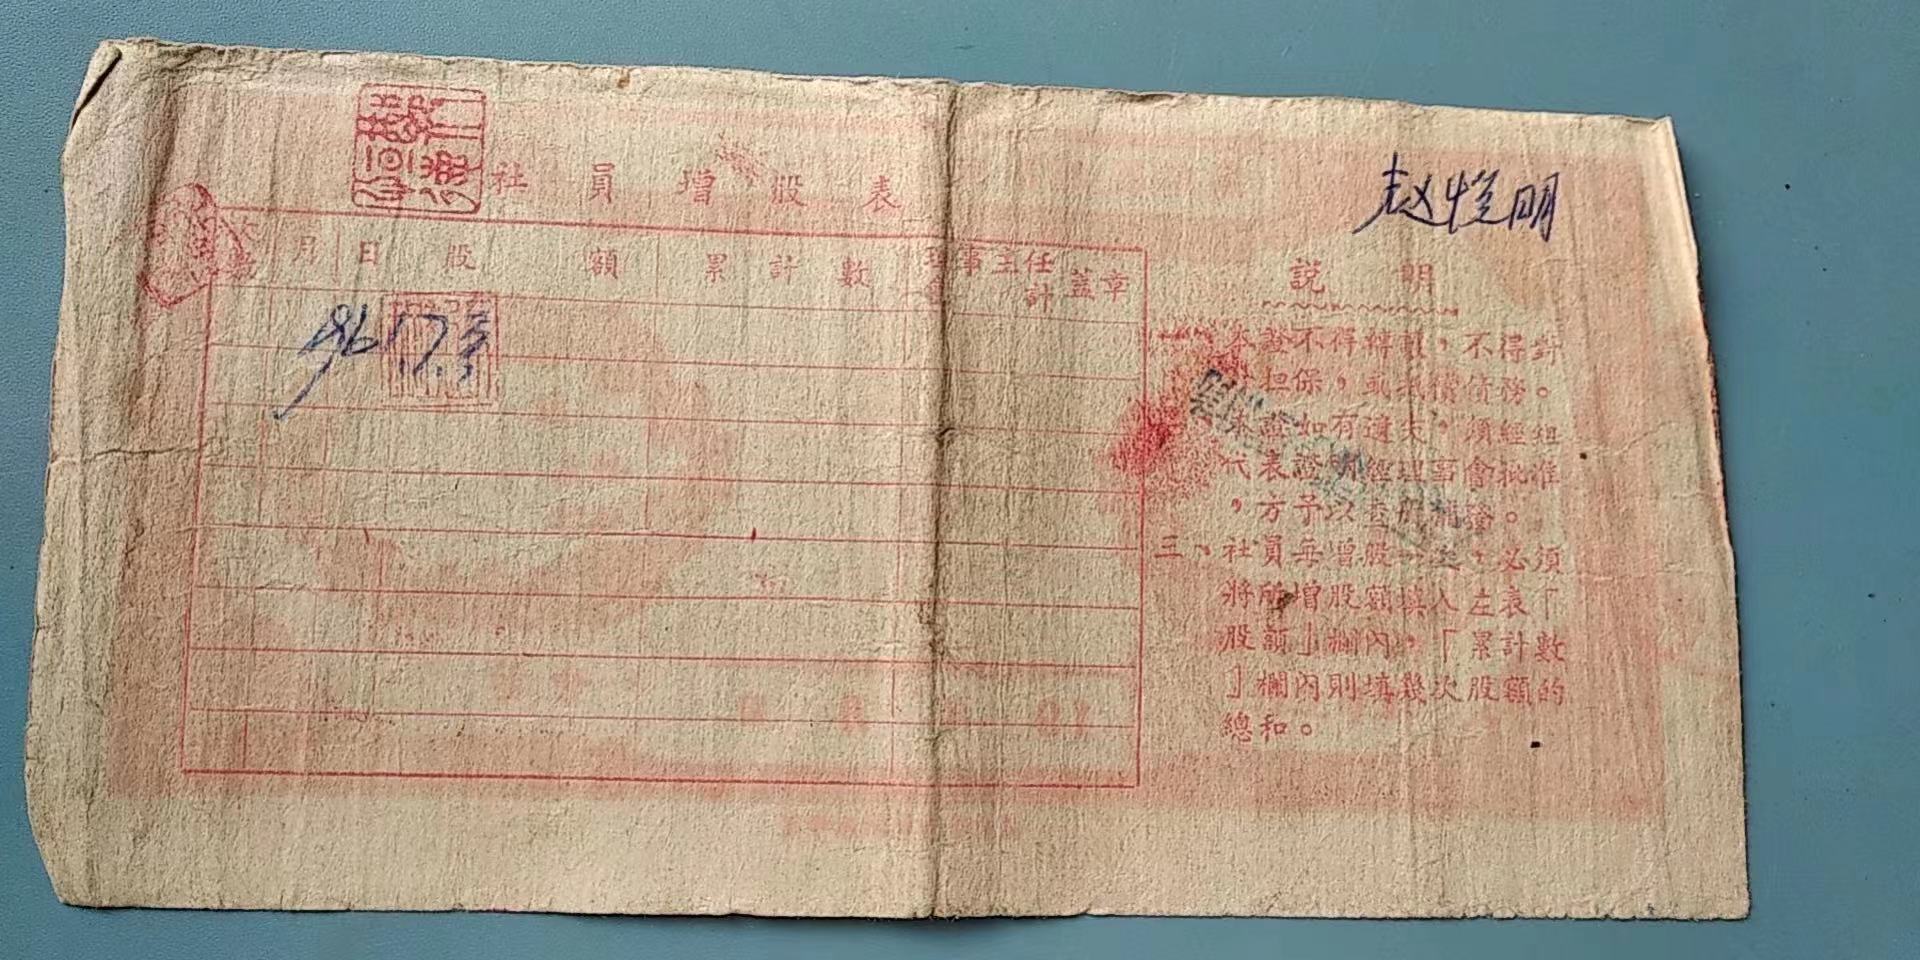 社員增股表
月 日 股額 累計數 理事主任 會計 蓋章
赵恺明
説明
一、本證不得轉讓，不得對
担保，或抵償債務。
本證如有遺失，須經組
代表證明經理事會批准
，方予以查補發。
三、社員每增股一次，必須
將所增股額填入左表「
股額」欄内，「累計數
」欄内則填幾次股額的
總和。